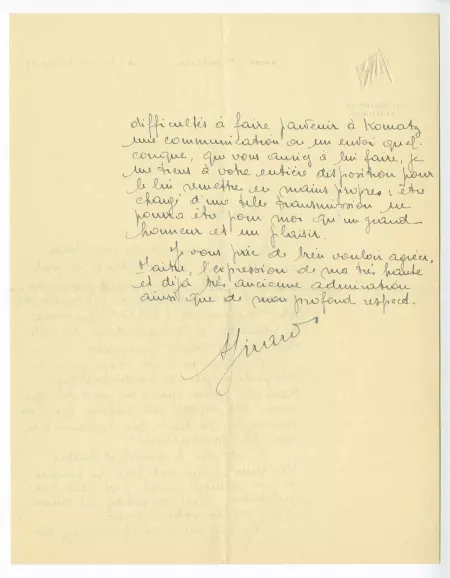 difficultés à faire parvenir à Komatz
une communication ou un envoi quel-
conque, que vous auriez à lui faire, je
me tiens à votre entière disposition pour
le lui remettre en mains propres : être
chargé d'une telle transmission ne
pourra être pour moi qu'un grand
honneur et un plaisir.
Je vous prie de bien vouloir agréer,
Maître, l'expression de ma très haute
et déjà très ancienne admiration
ainsi que de mon profond respect.